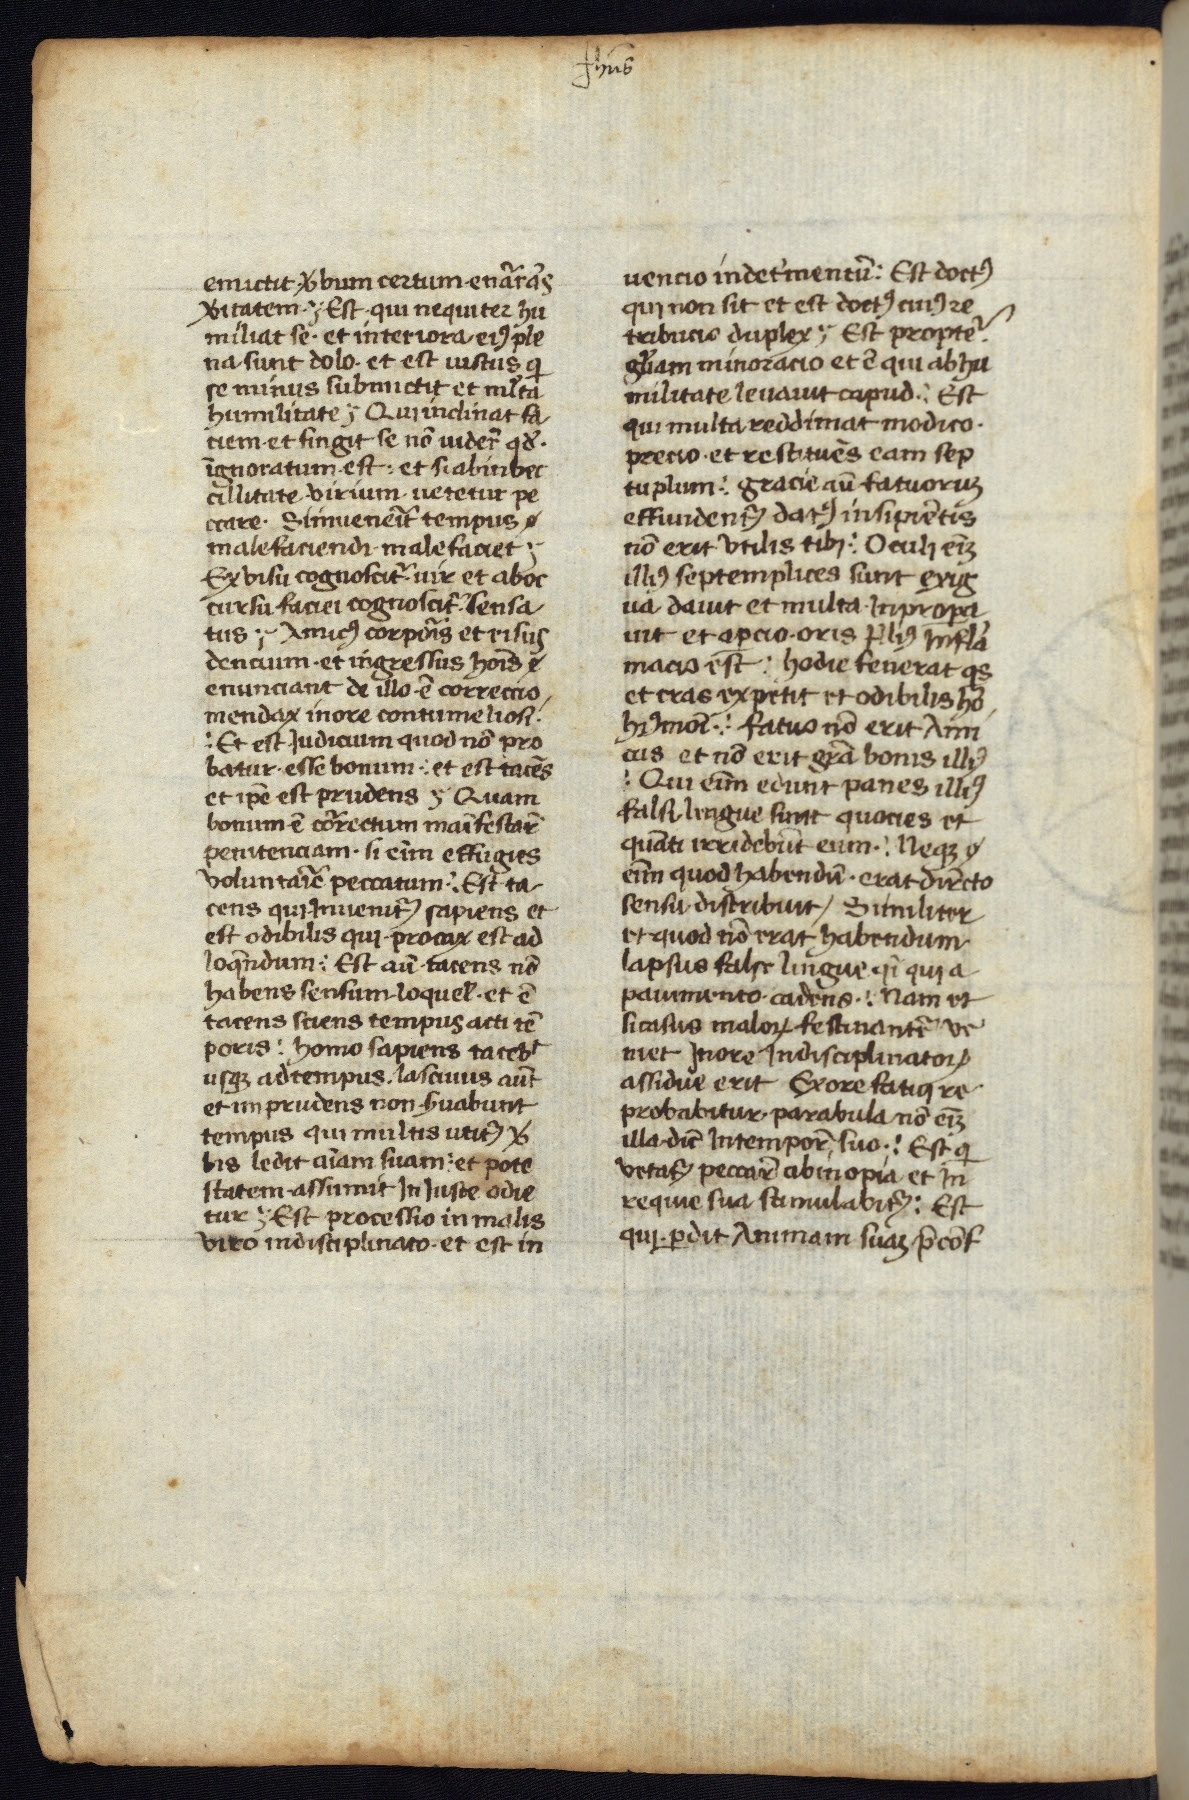 Jhūs
emictit v̄bum certum enār̄ās
v̄itatem· Est· qui nequiter hu
miliat se· et interiora eiꝰ ple
na sunt dolo· et est iustus qi
se minus submictit et ml̄ta
humilitate Qui inclinat fa
ciem et fingit se nō uider̄ qd̄·
īgnoratum est: et si ab inbec
cillitate virium uetetur pe
ccare· Si inuenei͛t tempus
malefaciendi malefaciet
Ex visu cognoscit͛ uir et aboc
cursu faciei cognoscit͛ sensa
tus Amicꝰ corpor̄is et risus
dencium· et ingressus hoīs
enunciant de illo· ē correccio
mendax inore contumeliosi
Et est Judicium quod nō pro
batur· esse bonum· et est tacēs
et ip̄e est prudens Quam
bonum ē cor̄rectum māifestar̄
penitenciam· si eīm effugies
voluntar̄iē peccatum: Est ta
cens qui Inuenit͛ sapiens et
est odibilis qui procax est ad
loq̄ndum: Est aū tacens nō
habens sensum loquel̄· et ē
tacens sciens tempus acti tē
poris: homo sapiens tacebt
usqꝫ ad tempus· lascivus aūt
et imprudens non s̄uabunt
tempus qui multis utit͛ v̄
bis ledit aīam suam: et pote
statem assumit In Juste odie
tur Est processio in malis
viro indisciplinato· et est in
uencio indet͛mentū: Est doctꝰ
qui non sit et est doctꝰ cuiꝰ re
tribucio duplex Est propte͛
gl̄iam minoracio et ē qui ab hu
militate levauit capud: Est
qui multa reddimat modico·
precio· et restituēs eam sep
tuplum: gracie aū fatuorum
effundent͛ datꝰ insipiētis
nō erit vtilis tibi: Oculi eīꝫ
illiꝰ septemplices sunt exig
ua dauit et multa Inpropa
uit et apcio· oris ip̄liꝰ Inflā
macio est: hodie fenerat qs
et cras expetit et odibilis hō
hꝰmoī: fatuo nō erit Ami
cus et nō erit gr̄a bonis illiꝰ
Qui eīm edunt panes illiꝰ
falsi lingue sunt quocies et
quāti irridebūt eum: Neqꝫ
eīm quod habendū· erat dir̄ecto
sensu distribuit Similiter
et quod nō erat habendum
lapsus false lingue qi qui a
pauimento· cadens: Nam et
sic casus maloꝝ festinantē ve
niet Inore Indisciplinatoꝝ
assidue erit Ex ore fatiq re
probabitur parabula nō eīꝫ
illa dic̄ Intempor̄ suo: Est qi
vetat͛ peccar̄ ab inopia et In
requie sua stimulabit͛: Est
qui p̄dit Animam suaꝫ p̄ cōf